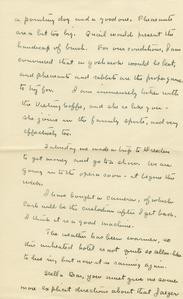 a pointing dog and a good one. Pheasants
are a bit too big. Quail would present the
handicap of brush. For our conditions, I am
convinced that a goshawk would be best,
and pheasants and rabbits are the proper game
to try for. I am immensely taken with
the Viertinghoffs, and she is like you -
she joins in the family sports, and very
effectively too.
Saturday we made a trip to Dresden
to get money and go to a show. We are
going in to the opera soon - it began this
week.
I have bought a camera, of which
Carl will be the custodian after I get back.
I think it is a good machine.
The weather has been warmer, so
this unheated hotel is not quite so allow
to live in, but now it is raining again.
Hello Bar, you must give me some
more explicit directions about that Jaeger